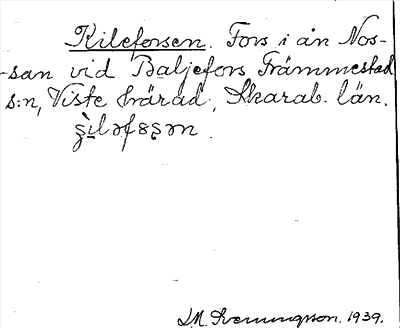 Kileforsen. Fors i ån Nos-
-san vid Baljefors Främmestad
s:n, Viste härad, Skarab. län.
J.M. Svenungsson. 1939.